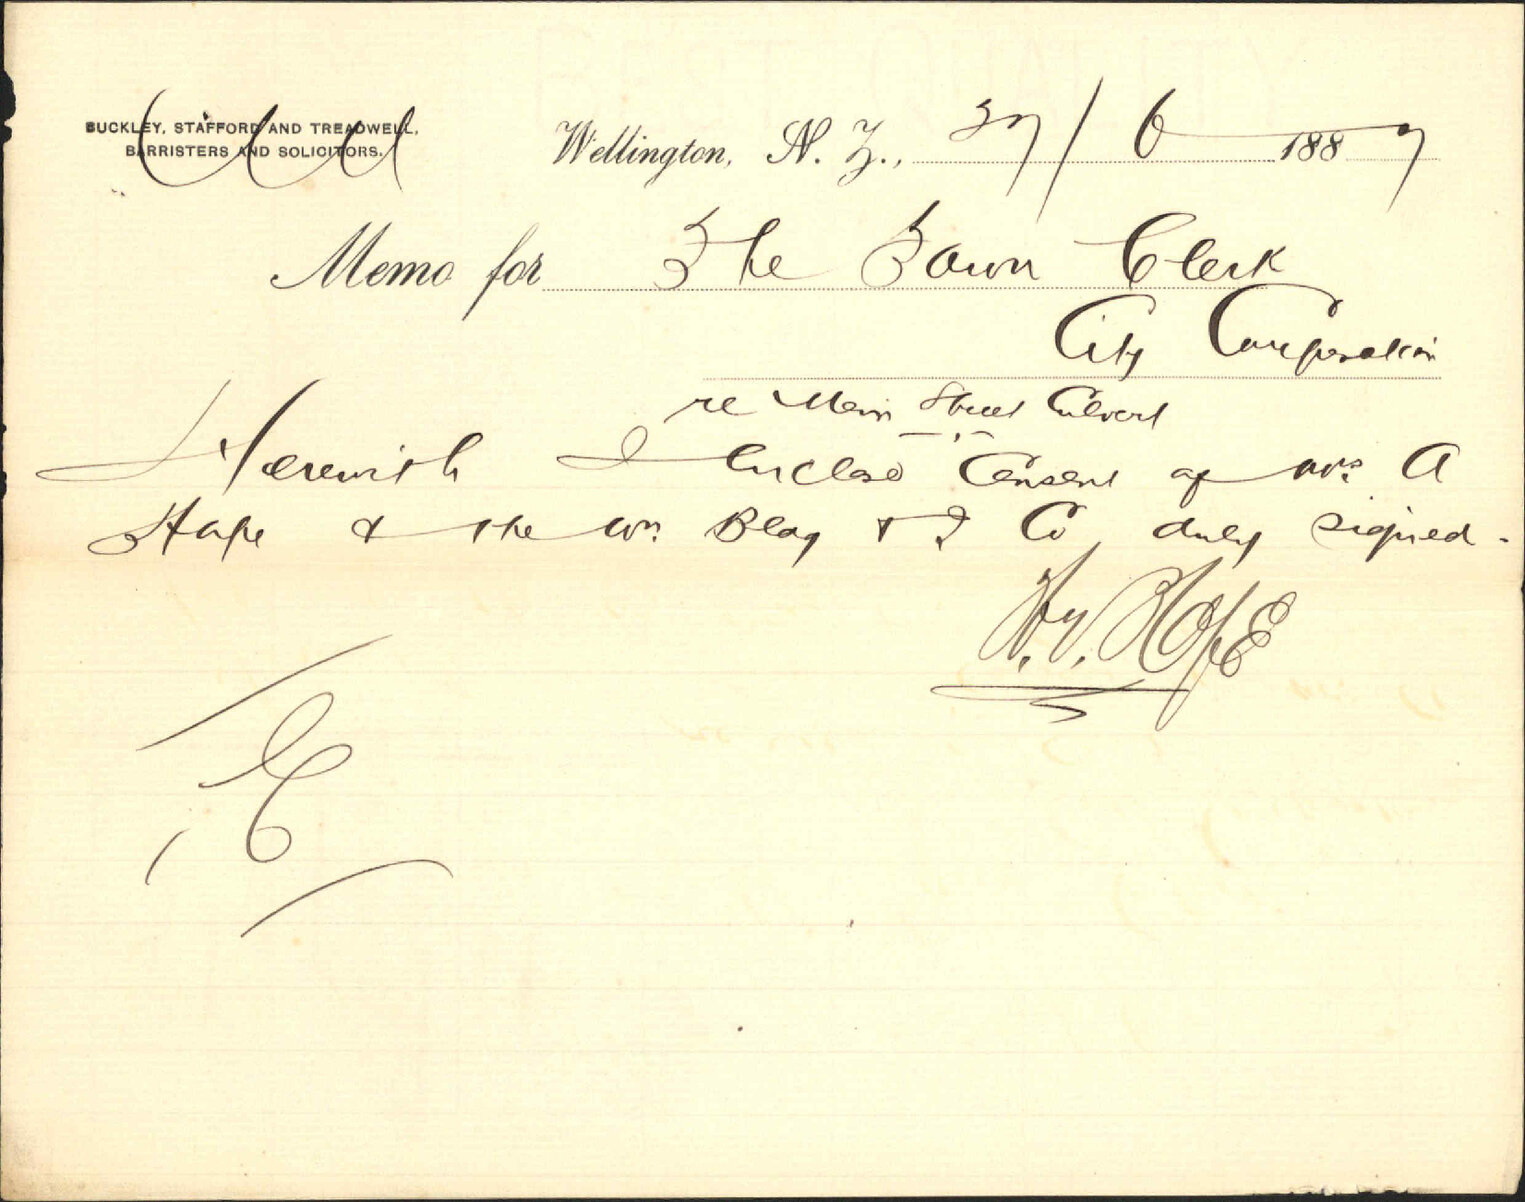 BUCKLEY, STAFFORD AND TREADWELL,
BARRISTERS AND SOLICITORS.
Wellington, N. Z., 27/6 1887
Memo for The Town Clerk
City Corporation
re Mein Street Culvert
Herewith I enclose Consent of Mrs. A
Hope & the Wn. Bldg & I Co duly signed.
Hy. Hope